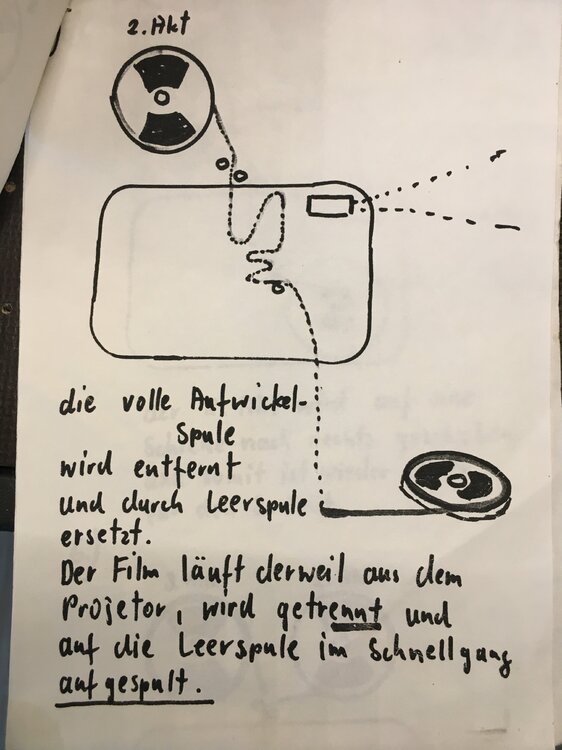 2. Akt
die volle Aufwickel-
spule
wird entfernt
und durch Leerspule
ersetzt.
Der Film läuft derweil aus dem
Projetor, wird getrennt und
auf die Leerspule im Schnellgang
aufgespult.